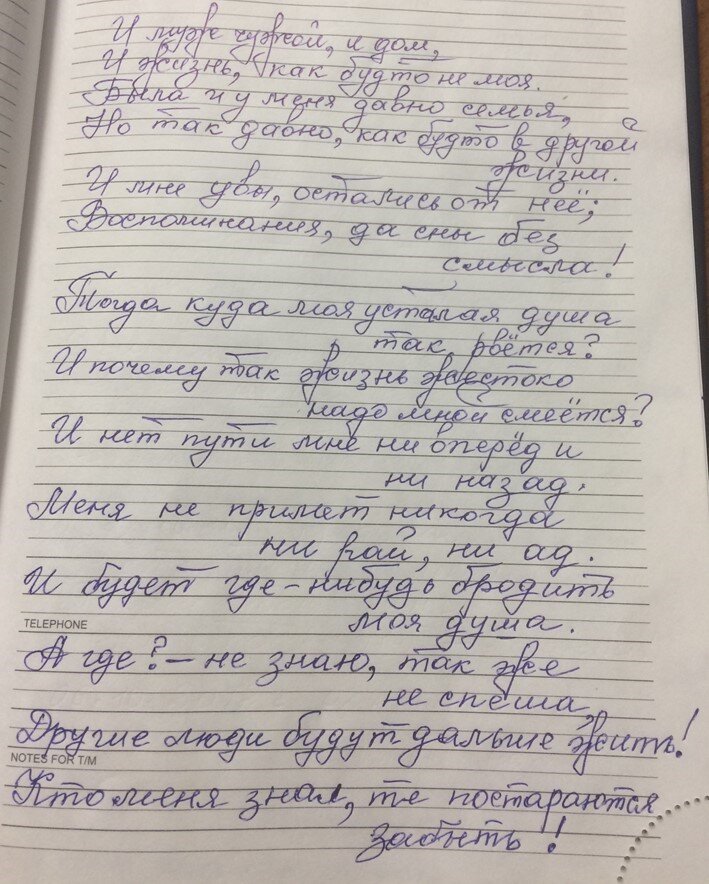 И муж чужой, и дом,
И жизнь, как будто не моя.
Была и у меня давно семья,
Но так давно, как будто в другой
жизни.
И мне увы, остались от неё;
Воспоминания, да сны без
смысла!
Тогда куда моя усталая душа
так рвётся?
И почему так жизнь жестоко
надо мной смеётся?
И нет пути мне ни вперёд и
ни назад.
Меня не примет никогда
ни рай, ни ад.
И будет где-нибудь бродить
моя душа.
TELEPHONE
А где? - не знаю, так же
не спеша,
Другие люди будут дальше жить!
NOTES FOR T/M
Кто меня знал, те постараются
забыть!